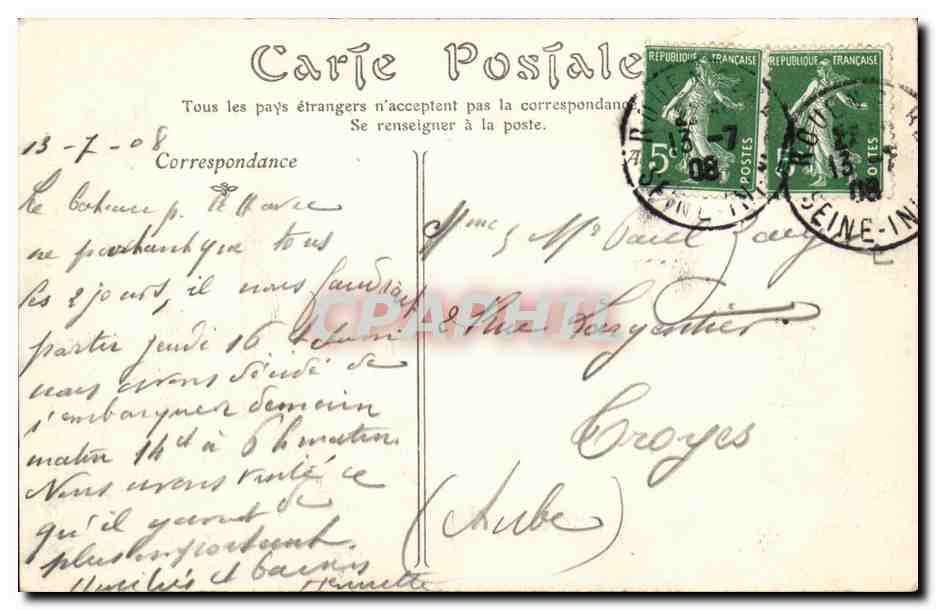 Carte Postale
Tous les pays étrangers n'acceptent pas la correspondance
Se renseigner à la poste.
RÉPUBLIQUE FRANÇAISE
5c
POSTES
RÉPUBLIQUE FRANÇAISE
5c
POSTES
ROUEN
13 -7
08
SEINE-IN
ROUEN
13
08
SEINE-IN
13-7-08
Correspondance
Le bateau p. le Havre
ne partant que tous
les 2 jours, il nous faudrait
partir jeudi 16
nous avons décidé de
s'embarquer demain
matin 14 ct à 6 h matin.
Nous avons visité ce
qu'il y avait de
plus important.
Amitiés et baisers
Henriette
CPAPHIL
Mme & Mr Paul
2 Rue Largentier
Troyes
(Aube)